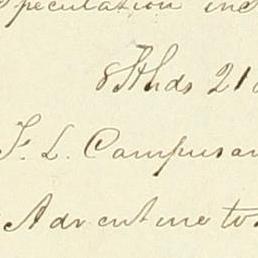 Speculation in
8 Hhds 21
F. L. Campusan
Adventure to